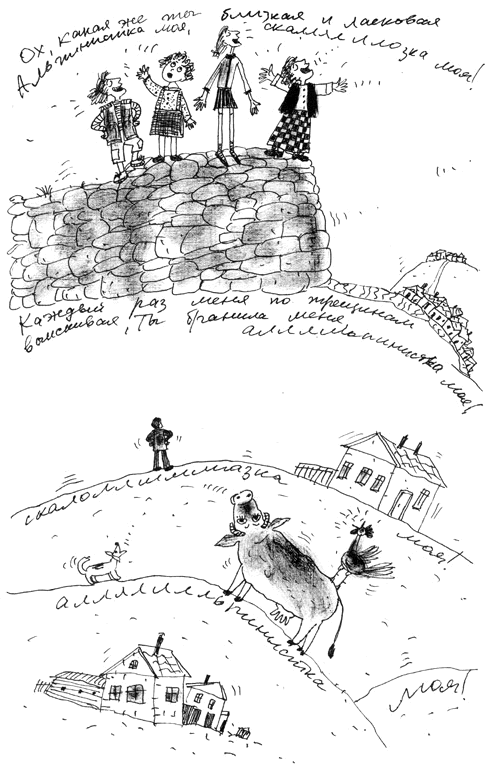 Ох, какая же ты близкая и ласковая
Альпинистка моя, скалллилозка моя!
Каждый раз меня по трещинам
выискивая, Ты бранила меня
алллльпинистка моя!
скалолллллллазка
моя!
алллллльпинистка
моя!